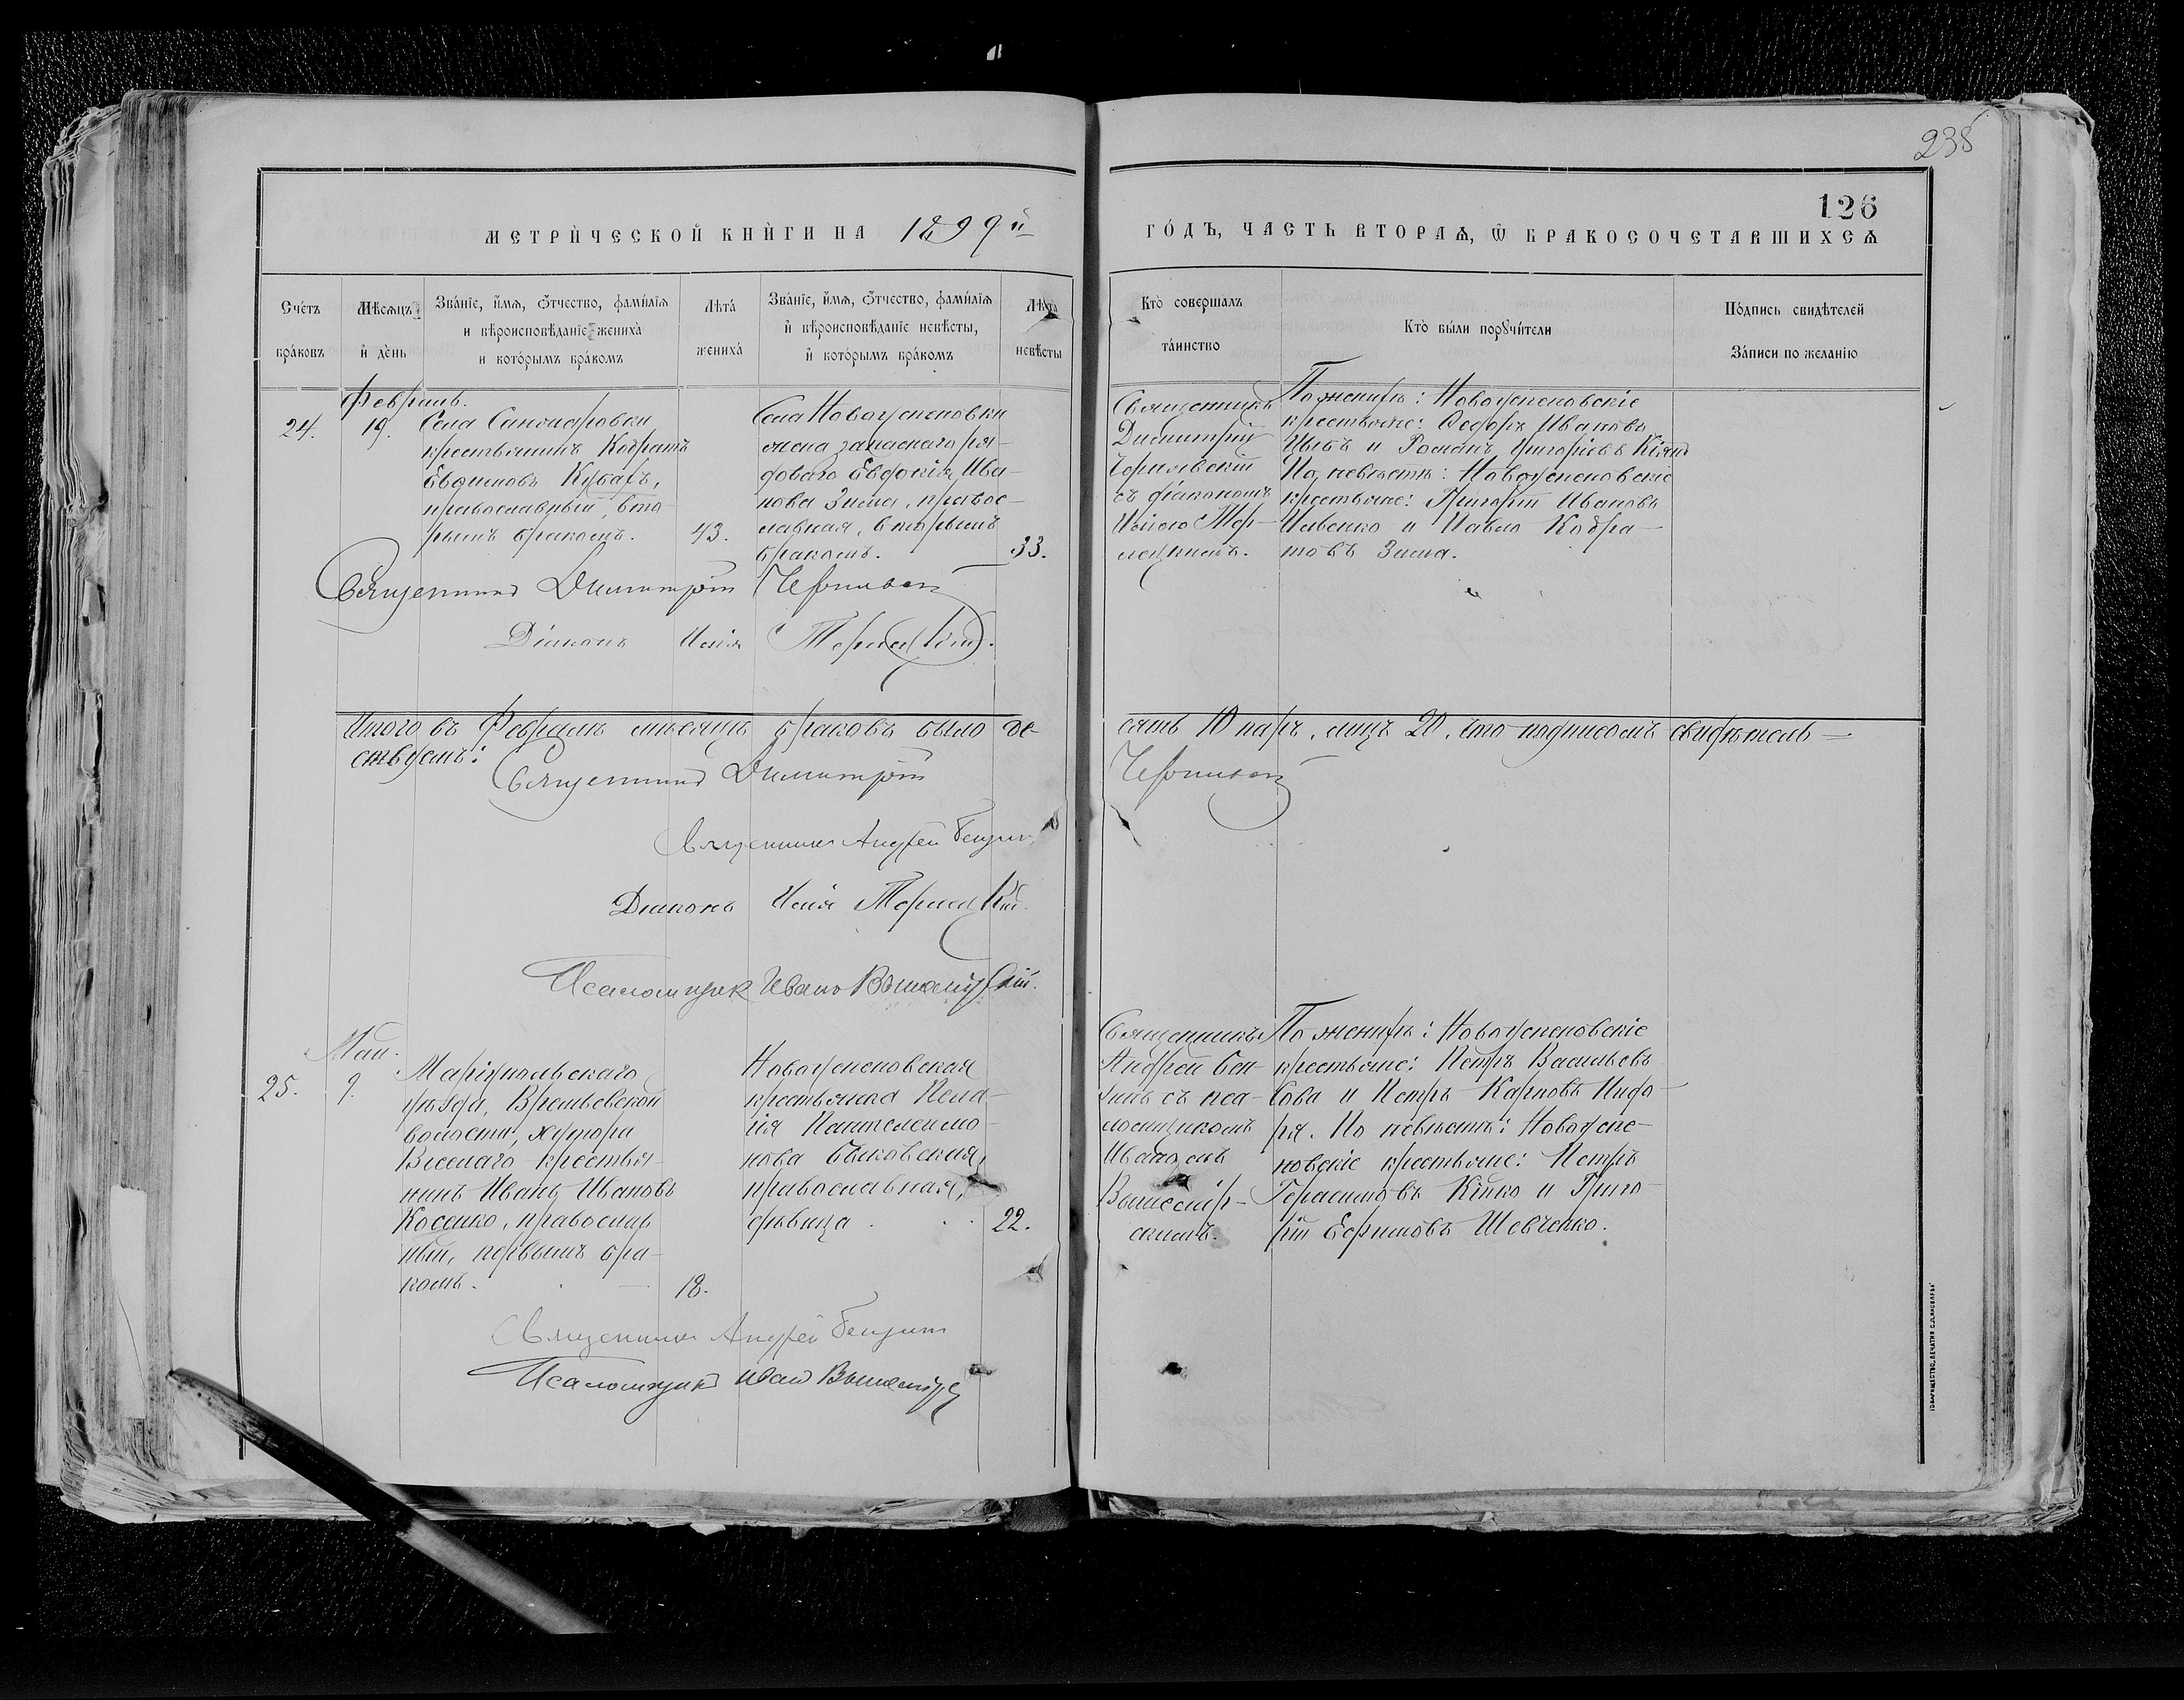 238
126
МЕТРИ́ЧЕСКОЙ КНИ́ГИ НА 1899й
ГО́ДЪ, ЧАСТЬ ВТОРАѦ, Ѿ БРАКОСОЧЕТАВШИХСѦ
Сче́тъ бра́ковъ
Мѣсѧцъ и҆ де́нь
Зва́нїе, и҆́мѧ, ѻ҆́тчество, фами́лїѧ
и вѣроисповѣ́данїе жениха̀
и кото́рымъ бра́комъ
Лѣта̀ жениха̀
Зва́нїе, и҆́мѧ, ѻ҆́тчество, фами́лїѧ
и҆ вѣроисповѣ́данїе невѣ́сты,
и҆ кото́рымъ бра́комъ
Лѣта̀ невѣ́сты
Кто̀ совершалъ
та́инство
Кто̀ бы́ли порꙋчи́тели
По́дпись свидѣ́телей
За́писи по жела́нїю
Февраль.
24.
19.
Села
крестьянинъ Кодратъ
Евфимовъ
православный, вто-
рымъ бракомъ.
43.
Села Новоуспеновки
жена запаснаго ря-
доваго Евдокія Ива-
нова Зима, правос-
лавная, вторымъ
бракомъ.
33.
Священникъ
Димитрій
Чернявскій
съ діакономъ
Исіею Тер-
лецкимъ.
По женихѣ: Новоуспеновскіе
крестьяне: Ѳедоръ Ивановъ
и Романъ Григоріевъ
По невѣстѣ: Новоуспеновскіе
крестьяне: Григорій Ивановъ
Ивенко и Павелъ Кодра-
товъ Зима.
Священникъ Димитрій Чернявскій
Діаконъ Исія Терлецкій.
Итого въ Февралѣ мѣсяцѣ браковъ было де-
сять 10 паръ, лицъ 20, что подписомъ свидѣтель-
ствуемъ:
Священникъ Димитрій Чернявскій
Священникъ Андрей
Діаконъ Исія Терлецкій.
Псаломщикъ Иванъ
Май.
25.
9.
Маріупольскаго
уѣзда, Времьевской
волости, хутора
Веселаго крестья-
нинъ Иванъ Ивановъ
Косенко, православ
ный, первымъ бра-
комъ.
18.
Новоуспеновская
крестьянка Пела-
гія Пантелеимо-
нова Быковская,
православная,
дѣвица
22.
Священникъ
Андрей Бен-
съ пса-
ломщикомъ
Иваномъ
скимъ.
По женихѣ: Новоуспеновскіе
крестьяне: Петръ Васильевъ
Сова и Петръ Карповъ
По невѣстѣ: Новоуспе-
новскіе крестьяне: Петръ
Герасимовъ Кійко и Григо-
рій Ефимовъ Шевченко.
Священникъ Андрей
Псаломщикъ Иван